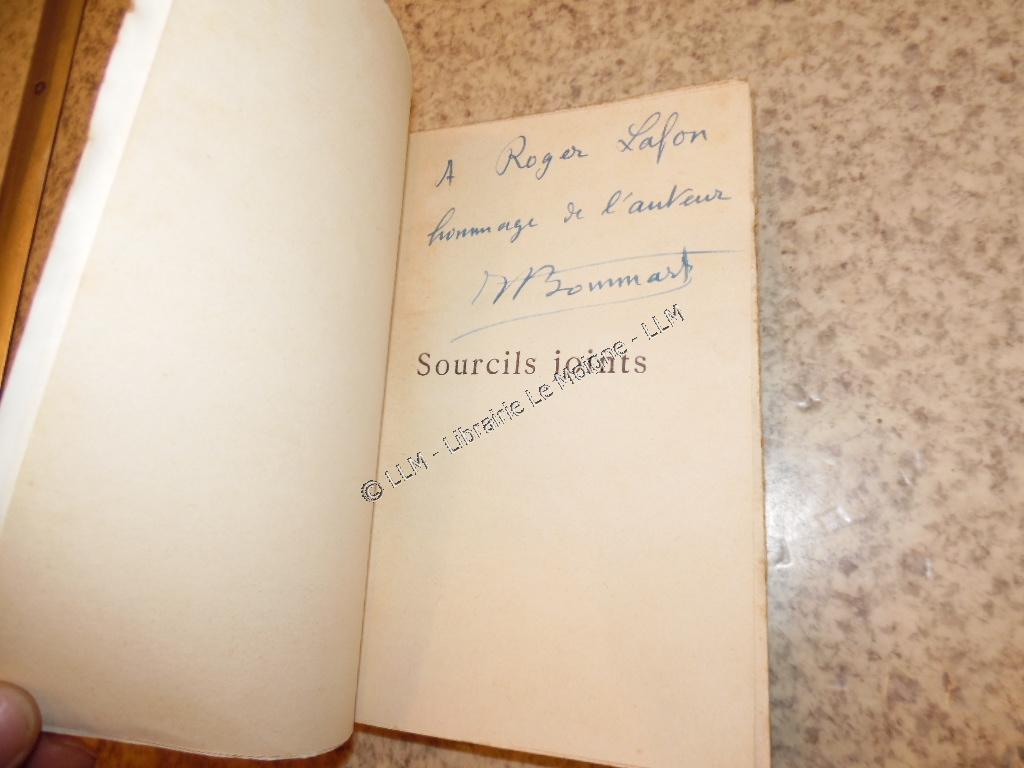 A Roger Lafon
hommage de l'auteur
Bommart
Sourcils joints
© LLM - Librairie Le Moigne - LLM